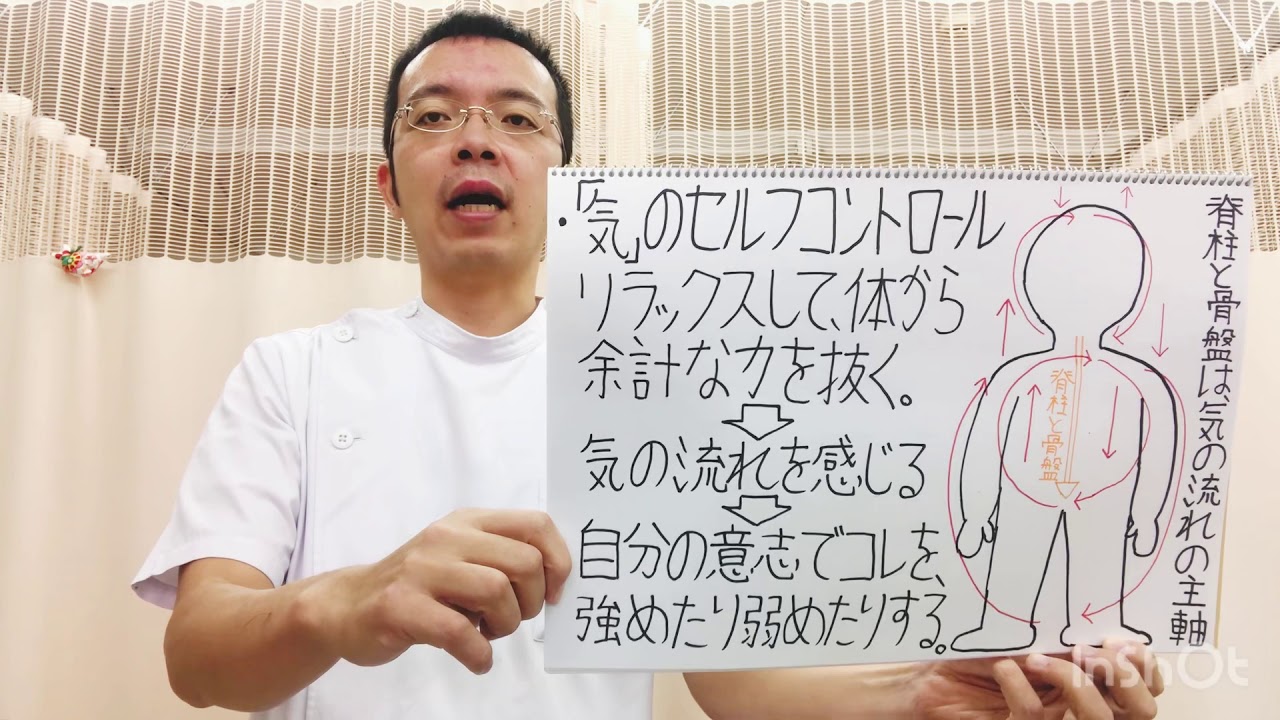 ・「気」のセルフコントロール
リラックスして、体から
余計な力を抜く。
気の流れを感じる
自分の意志でコレを、
強めたり弱めたりする。
脊柱と骨盤
脊柱と骨盤は、気の流れの主軸
InShOt